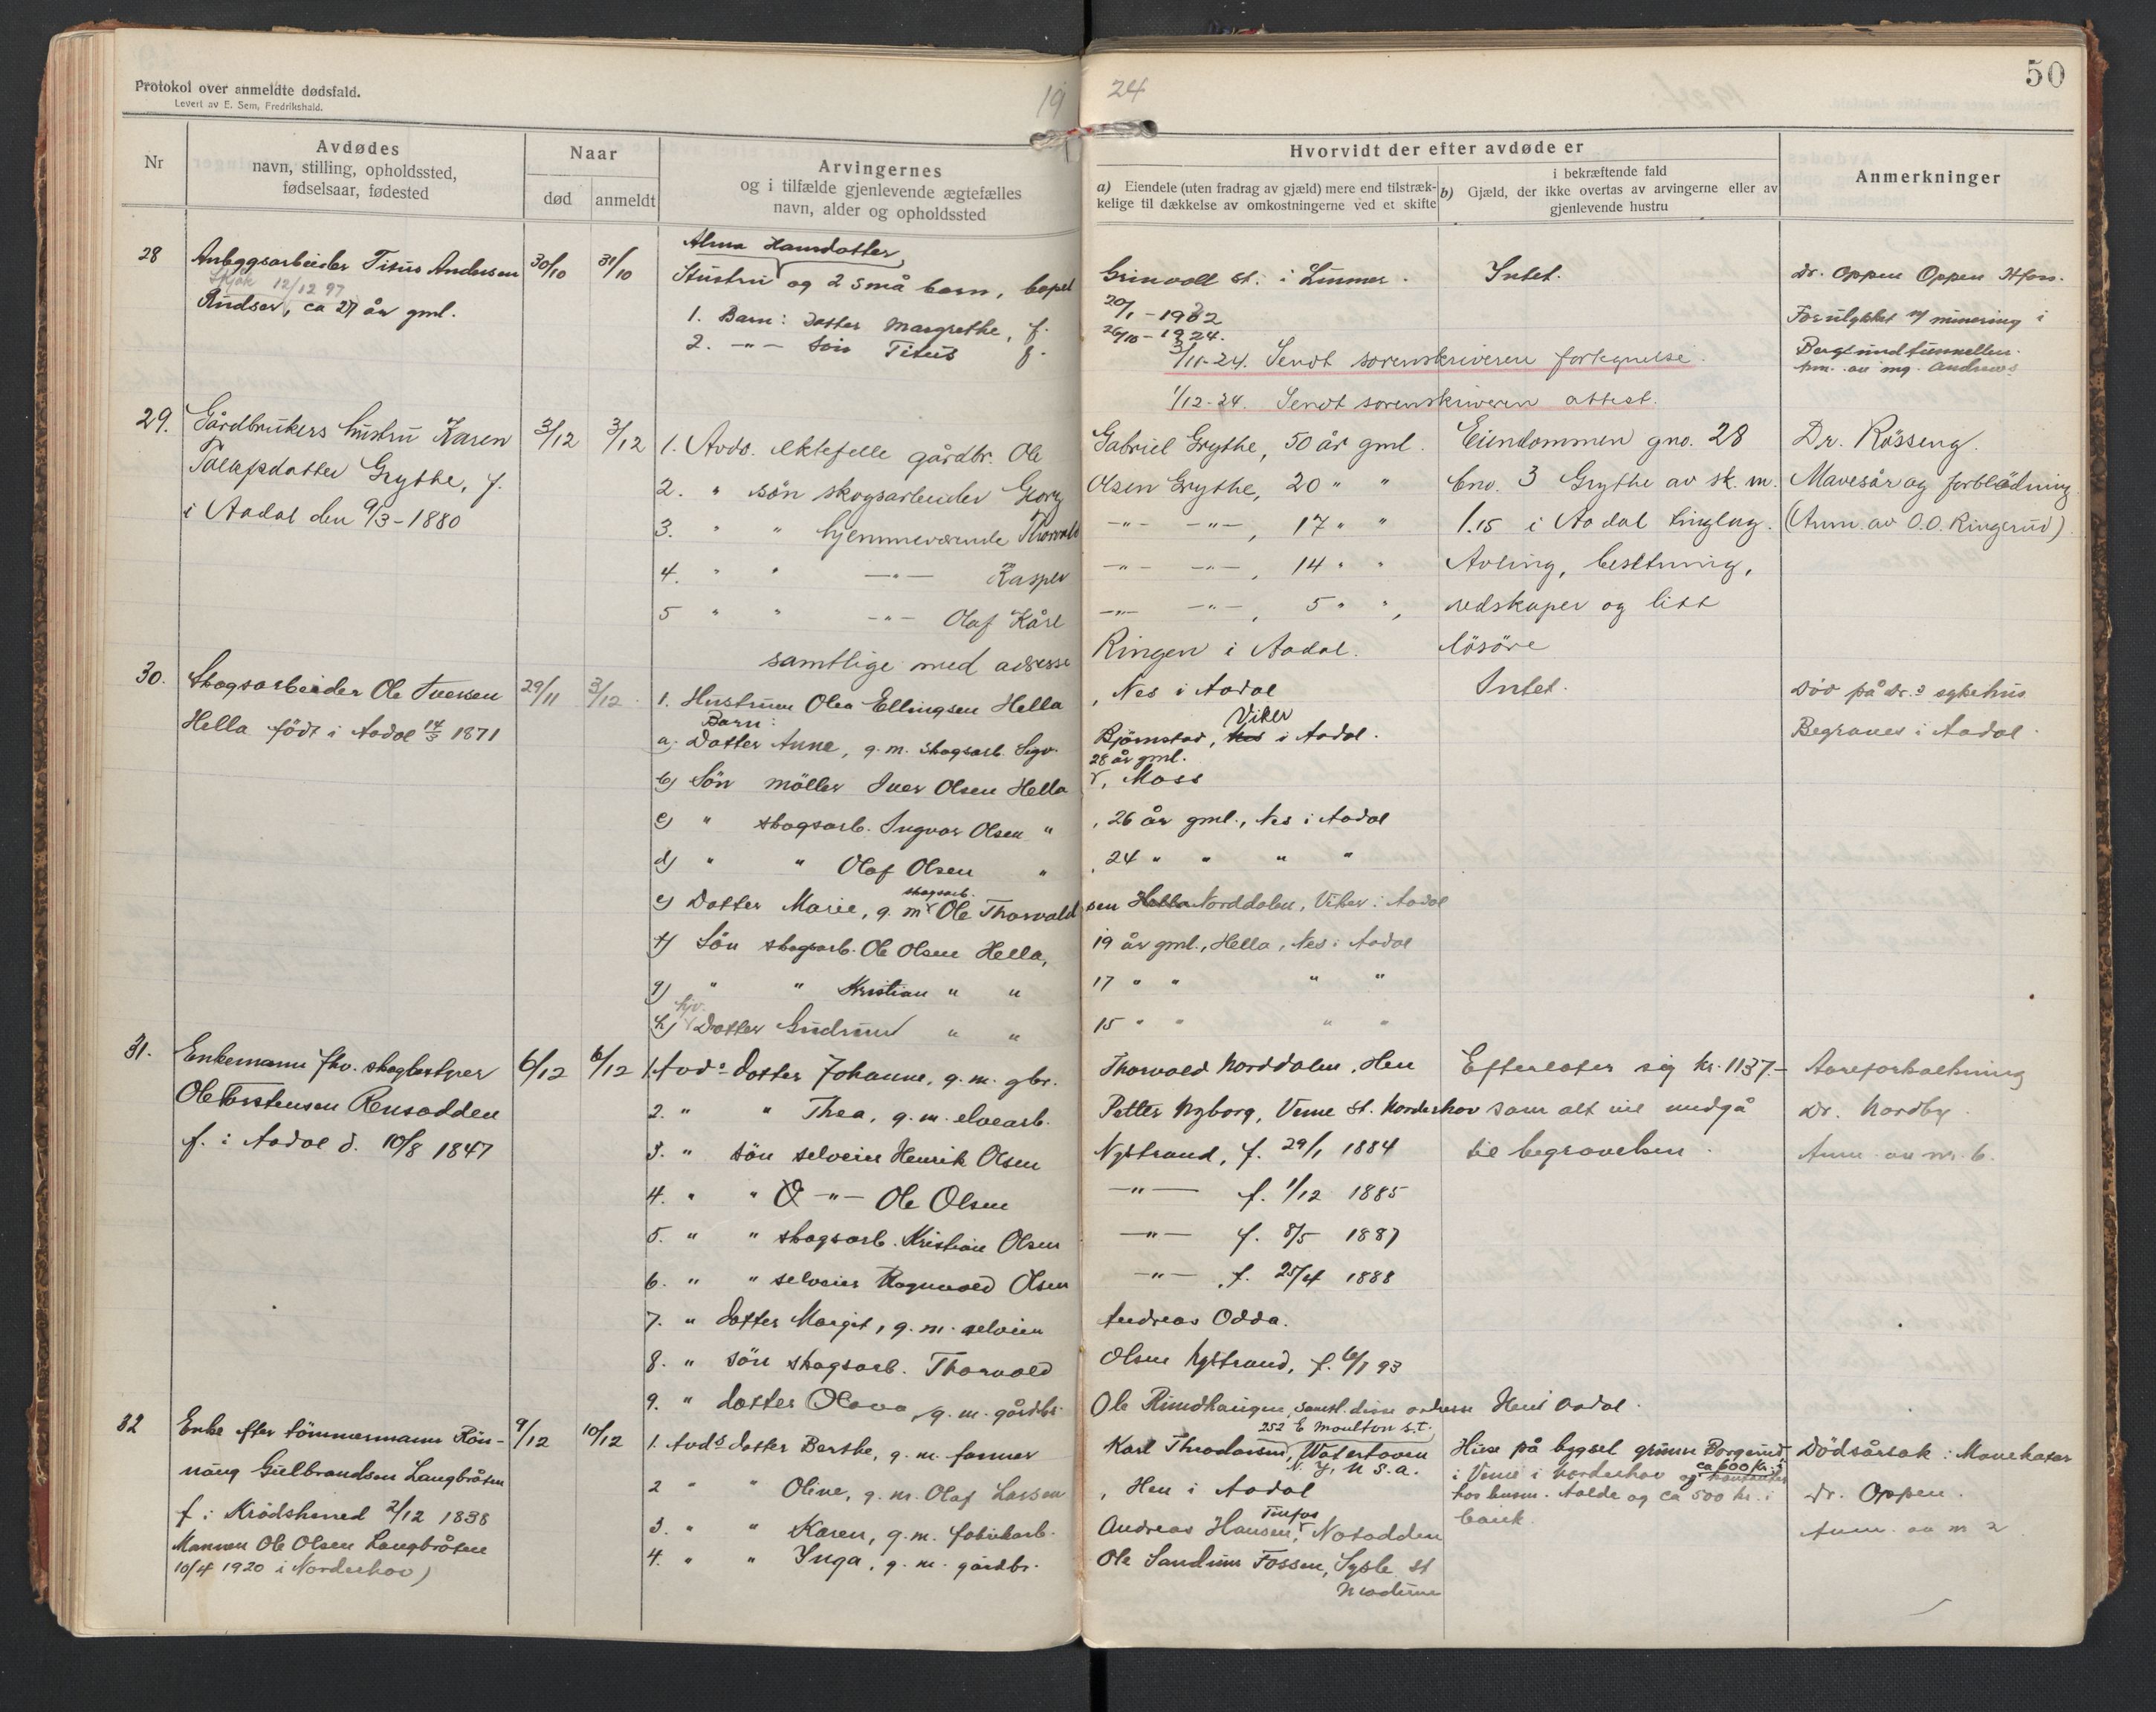 Protokol over anmeldte dødsfald.
Levert av E. Sem, Fredrikshald.
19 24
50
Nr
Avdødes
navn, stilling, opholdssted,
fødselsaar, fødested
Naar
død
anmeldt
Arvingernes
og i tilfælde gjenlevende ægtefælles
navn, alder og opholdssted
Hvorvidt der efter avdøde er
a) Eiendele (uten fradrag av gjæld) mere end tilstræk-
kelige til dækkelse av omkostningerne ved et skifte
i bekræftende fald
b) Gjæld, der ikke overtas av arvingerne eller av
gjenlevende hustru
Anmerkninger
28 Anleggsarbeider Titus Andersen
Skjåk 12/12 97
Rudser, ca 27 år gml.
30/10 31/10
Alma Hansdatter
Hustru og 2 små barn, bopel Grinvoll st. i Lunner.
1. Barn: Datter Margrethe, f. 20/1 - 1922
2. -"- Søn Titus f. 26/10 - 1924.
3/11-24. Sendt sorenskriveren fortegnelse.
1/12-24. Sendt sorenskriveren attest.
Intet.
Dr. Oppen Oppen Hfoss.
Forulykket v/ minering i
Bergsundtunnellen.
Anm. av ing. Andrews
29. Gårdbrukers hustru Karen
Grythe, f.
i Aadal den 9/3-1880
3/12 3/12
1. Avds. ektefelle gårdbr. Ole Gabriel Grythe, 50 år gml.
2. " søn skogsarbeider Georg Olsen Grythe, 20 " "
3. " " hjemmeværende Thorvald -"- -"-, 17 " "
4. " " -"- Kasper -"- -"-, 14 " "
5 " " -"- Olaf Kårl -"- -"-, 5 " ",
samtlige med adresse Ringen i Aadal.
Eiendommen gno. 28
bno. 3 Grythe av sk. m.
1.15 i Aadal tinglag.
Avling, besetning,
redskaper og litt
løsøre
Dr. Rösseng.
Mavesår og forblødning
(Anm. av O.O. Ringerud)
30. Skogsarbeider Ole Iversen
Hella født i Aadal 14/3 1871
29/11 3/12
1. Hustruen Olea Ellingsen Hella, Nes i Aadal
Barn:
a) Datter Anne, g.m. skogsarb. Sigv. Bjørnstad, Nes Viker i Aadal.
28 år gml.
b) Søn møller Iver Olsen Hella, Moss
c) " skogsarb. Ingvar Olsen ", 26 år gml., Nes i Aadal
d) " " Olaf Olsen ", 24 " " " "
e) Datter Marie, g.m. skogsarb. Ole Thorvaldsen Hella Norddalen, Viker i Aadal
f) Søn skogsarb. Ole Olsen Hella, 19 år gml., Hella, Nes i Aadal
g) " " Kristian " " 17 " " " "
h) hjv. Datter Gudrun " " 15 " " " "
Intet.
Død på Dr.s sykehus
Begraves i Aadal.
31. Enkemann fhv. skogbestyrer
Ole Torstensen Rensodden
f. i Aadal d. 10/8 1847
6/12 6/12
1. Avds datter Johanne, g.m. gbr. Thorvald Norddalen, Hen
2. " " Thea, g.m. elvearb. Petter Nyborg, Veme st. Norderhov
3. " søn selveier Henrik Olsen Nystrand, f. 29/1 1884
4. " " -"- Ole Olsen -"- f. 1/12 1885
5. " " skogsarb. Kristian Olsen -"- f. 8/5 1887
6. " " selveier Ragnvald Olsen -"- f. 25/4 1888
7. " datter Margit, g.m. selveier Andreas Odda.
8. " søn skogsarb. Thorvald Olsen Nystrand, f. 6/1 93
9. " datter Olava, g.m. gårdbr. Ole Rundhaugen, samtl. disse adresse Hen i Aadal.
Efterlater sig kr. 1137.-
som alt vil medgå
til begravelsen.
Aareforkalkning
Dr. Nordby.
Anm. av nr. 6.
32 Enke efter tømmermann Rön-
naug Gulbrandsen Langbråten
f. i Krödsherred 2/12 1838
Mannen Ole Olsen Langbråten
10/4 1920 i Norderhov)
9/12 10/12
1. Avds datter Berthe, g.m. farmer Karl Theodorsen, 252 E Moulton s.t. Watertown
N. Y. U S. a.
2 " " Oline, g.m. Olaf Larsen, Hen i Aadal
3. " " Karen, g.m. fabrikarb. Andreas Hansen, Tinfos Notodden
4. " " Inga, g.m. gårdbr. Ole Sandum Fossen, Sysle st
Modum
Huse på bygsel grunn Borgerud
i Veme i Norderhov og ca 600 kr. i
hos husm. Aalde og ca 500 kr. i
bank.
Dödsårsak: Mavekatar
Dr. Oppen.
Anm. av nr 2